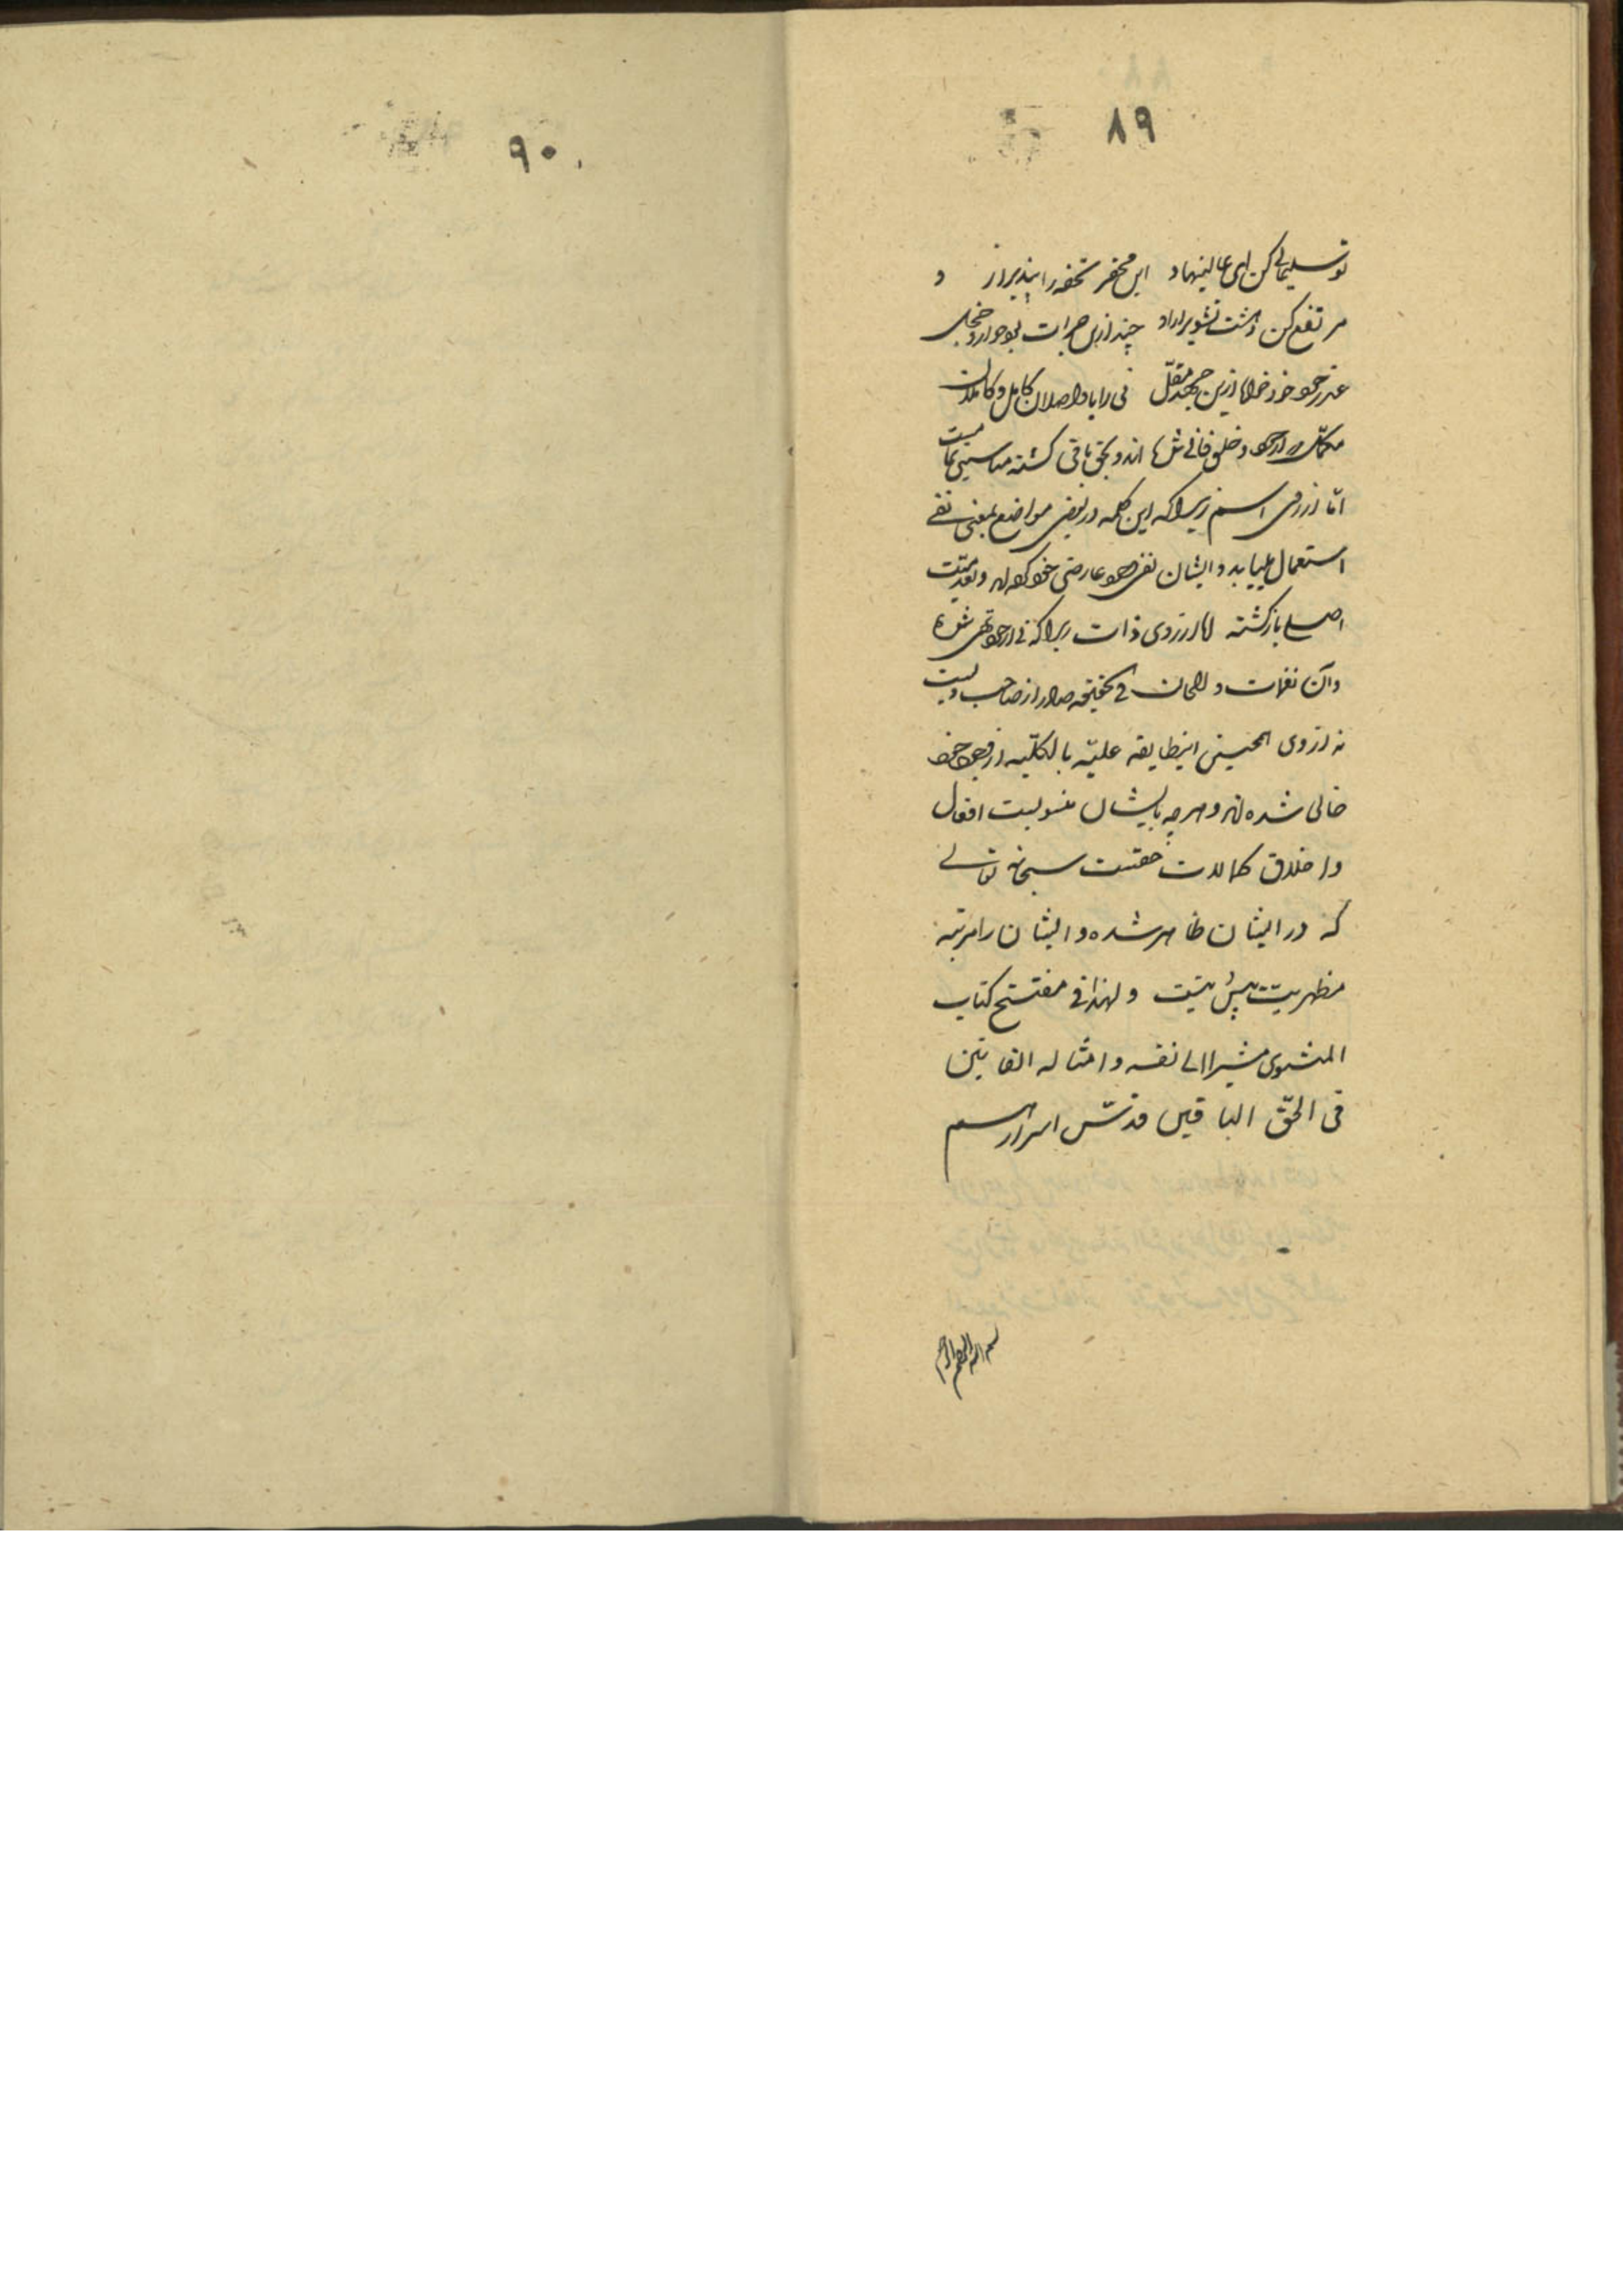 ۸۹
تو سلیمانی کن ای عالینهاد این محقر تحفه را بپذیر از و
مرتفع کن دهشت تشویر او چند ازین جرات بود خوار و خجل
عذر خود خواها ازین جهد مقل نی را با واصلان کامل و کاملان
مکمل که از خود و خلق فانی شده اند و بحق باقی گشته مناسبتی تمامست
اما از روی اسم زیرا که این کلمه در بعضی مواضع بمعنی نفی
استعمال مییابد و ایشان نفی وجود عارضی خود کرده اند و بعدمیت
اصلی بازگشته اما از روی ذات زیرا که نی از خود تهی شده
و آن نغمات و الحان فی الحقیقه صادر از صاحب ویست
نه از وی همچنین اینطایفه علیه بالکلیه از وجود خود
خالی شده اند و هرچه بایشان منسوبست افعال
و اخلاق کمالات حقست سبحانه تعالی
که در ایشان ظاهر شده و ایشان را مرتبه
مظهریت بیش نیست و لهذا فی مفتتح کتاب
المثنوی مشیرا الی نفسه و امثاله الفانین
فی الحق الباقین قدس اسرارهم
بسم الله الرحمن الرحیم
۹۰